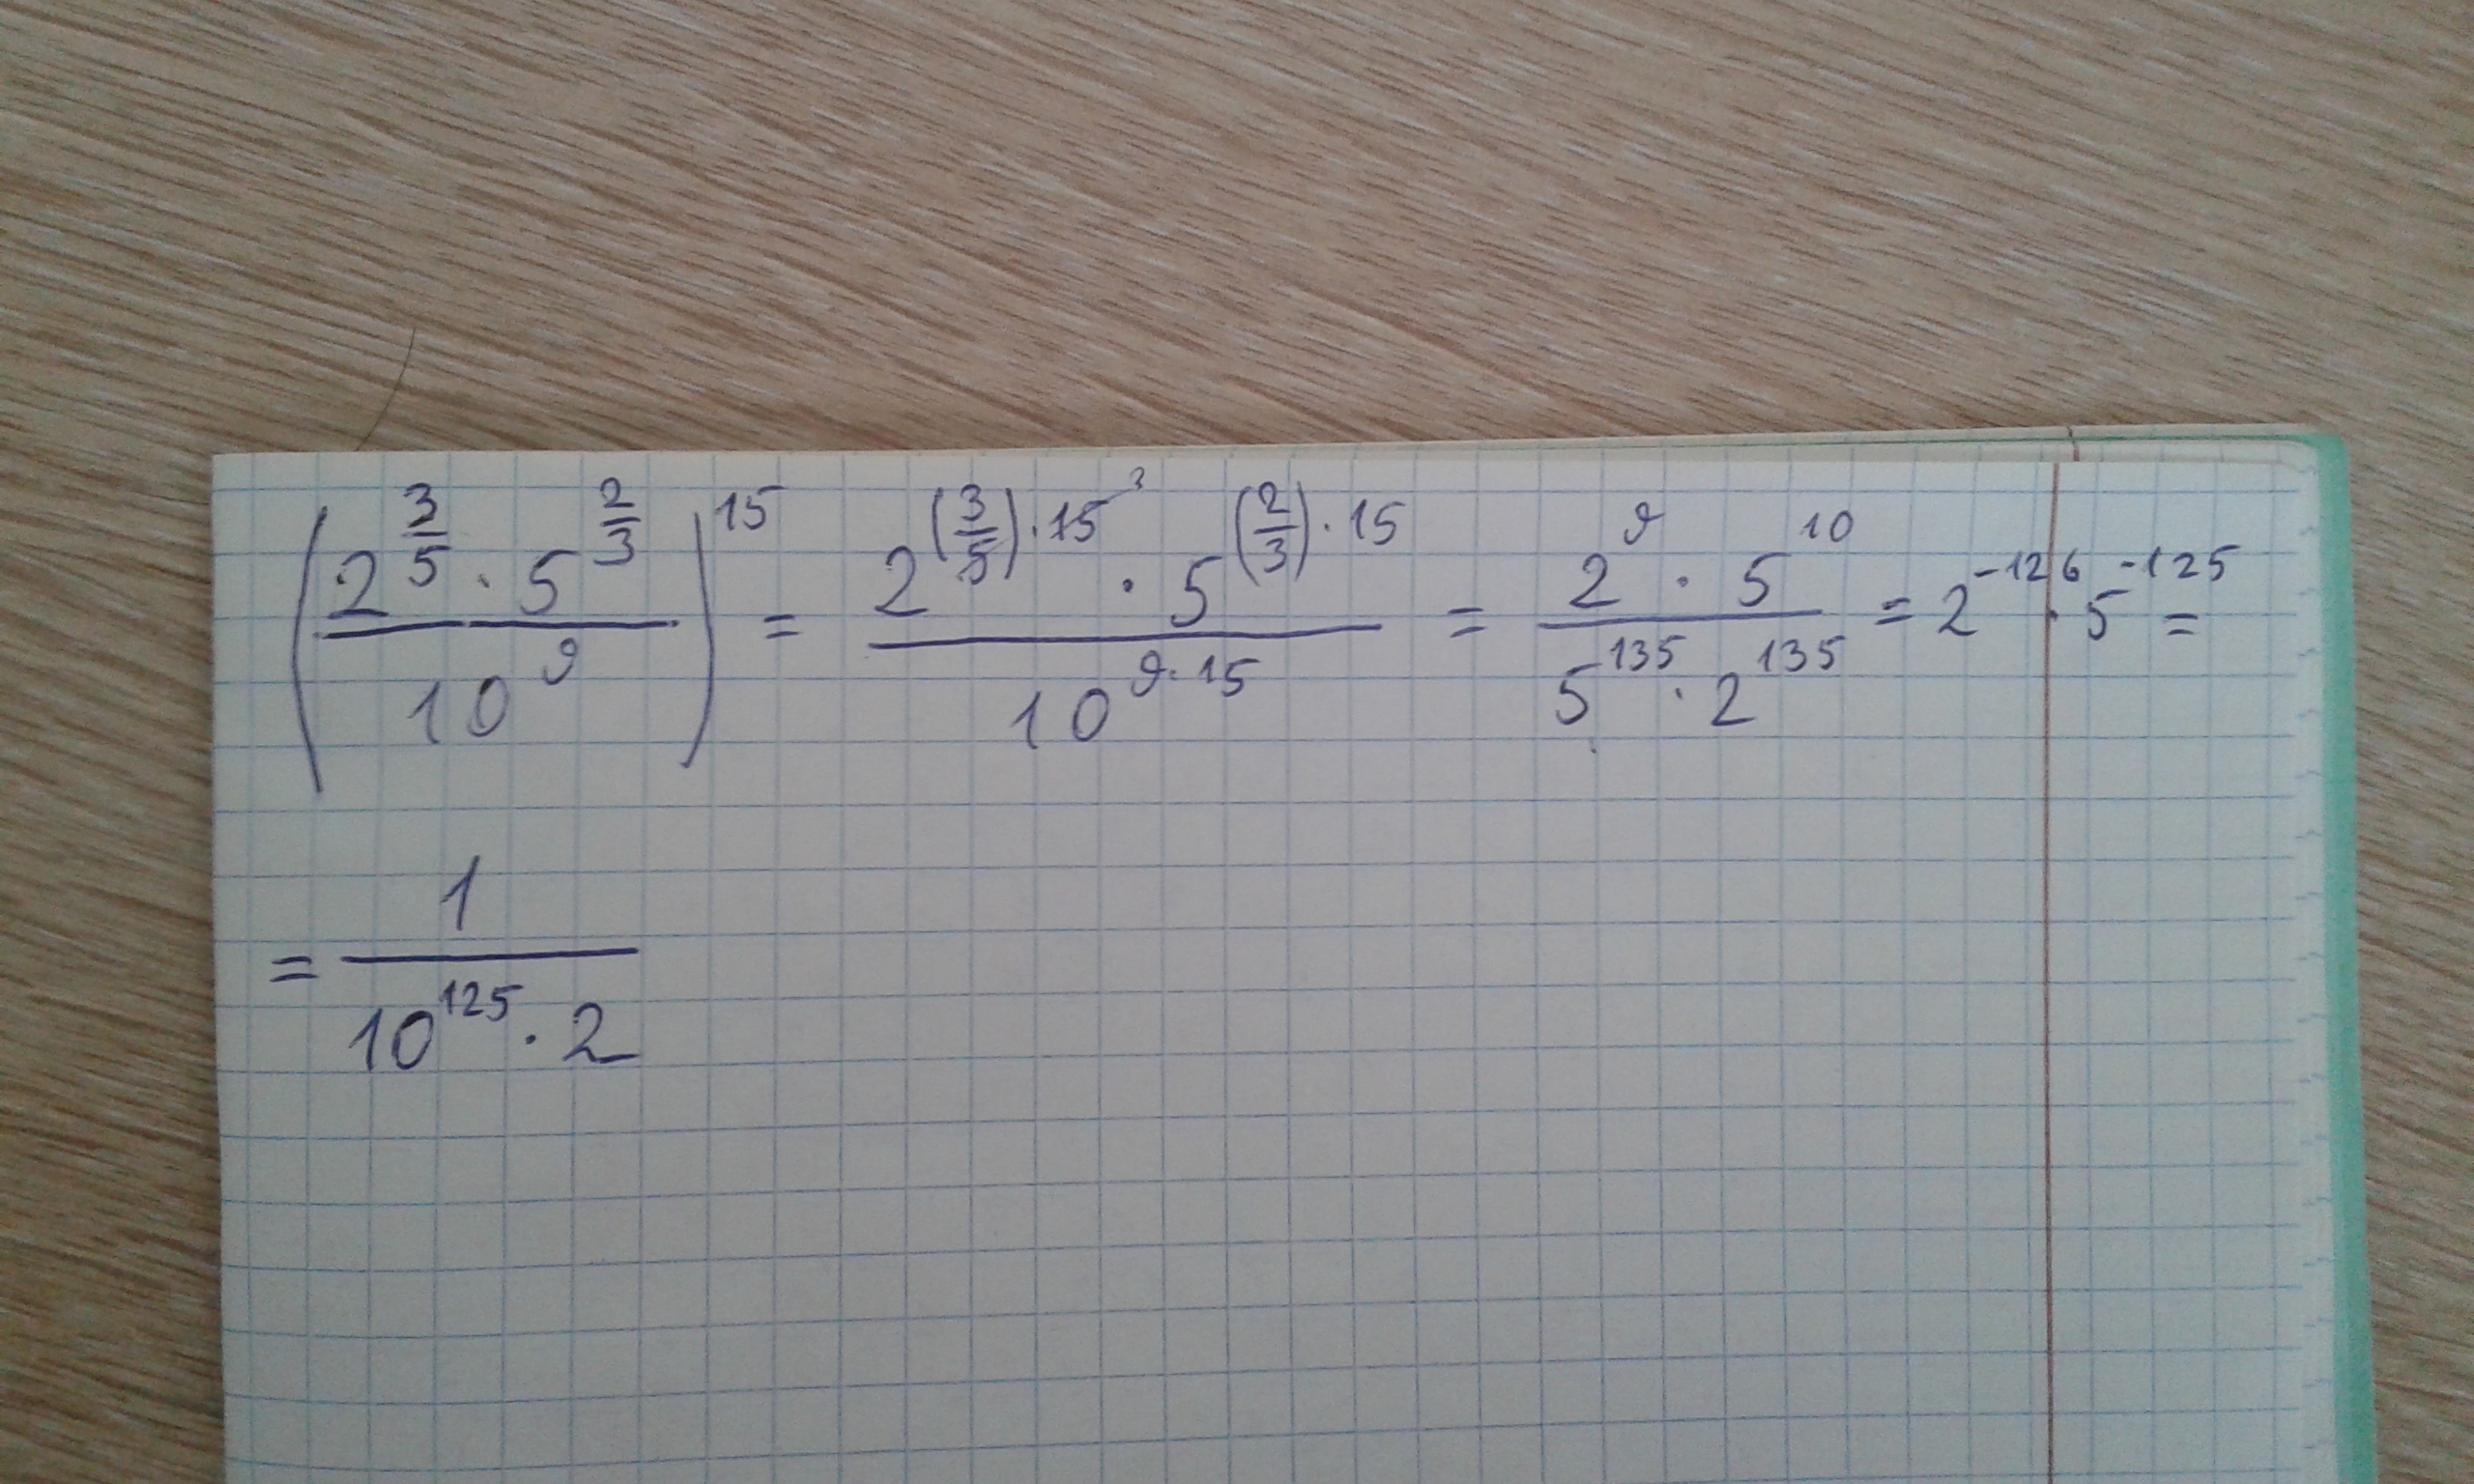 (2^(3/5) · 5^(2/3) / 10^9)^15 = 2^((3/5)·15^3) · 5^((2/3)·15) / 10^(9·15) = 2^9 · 5^10 / 5^135 · 2^135 = 2^-126 · 5^-125 =
= 1 / 10^125 · 2